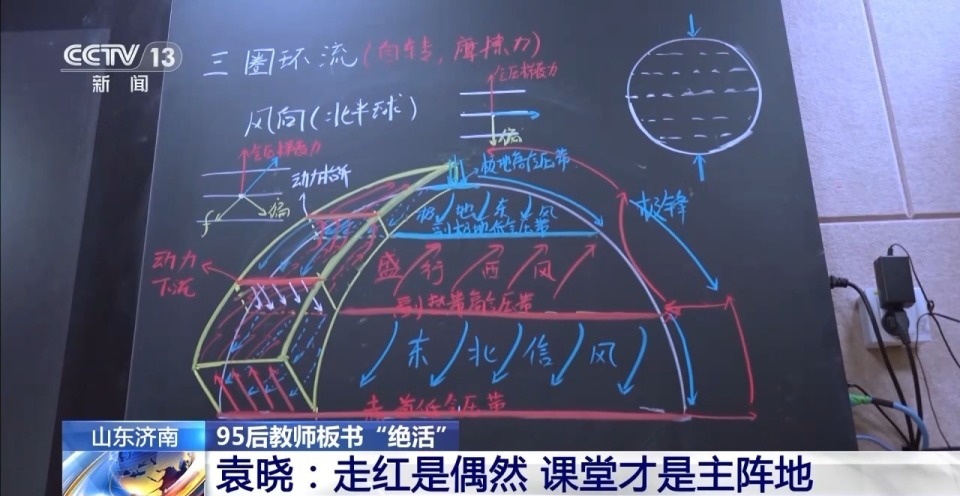 CCTV 13
新闻
三圈环流(自转,摩擦力)
风向(北半球)
气压梯度力
偏
气压梯度力
动力抬升
偏
f
极地高气压带
极地东风
副极地低气压带
极锋
动力
下沉
盛行西风
副热带高气压带
东北信风
赤道低气压带
山东济南
95后教师板书“绝活”
袁晓：走红是偶然 课堂才是主阵地